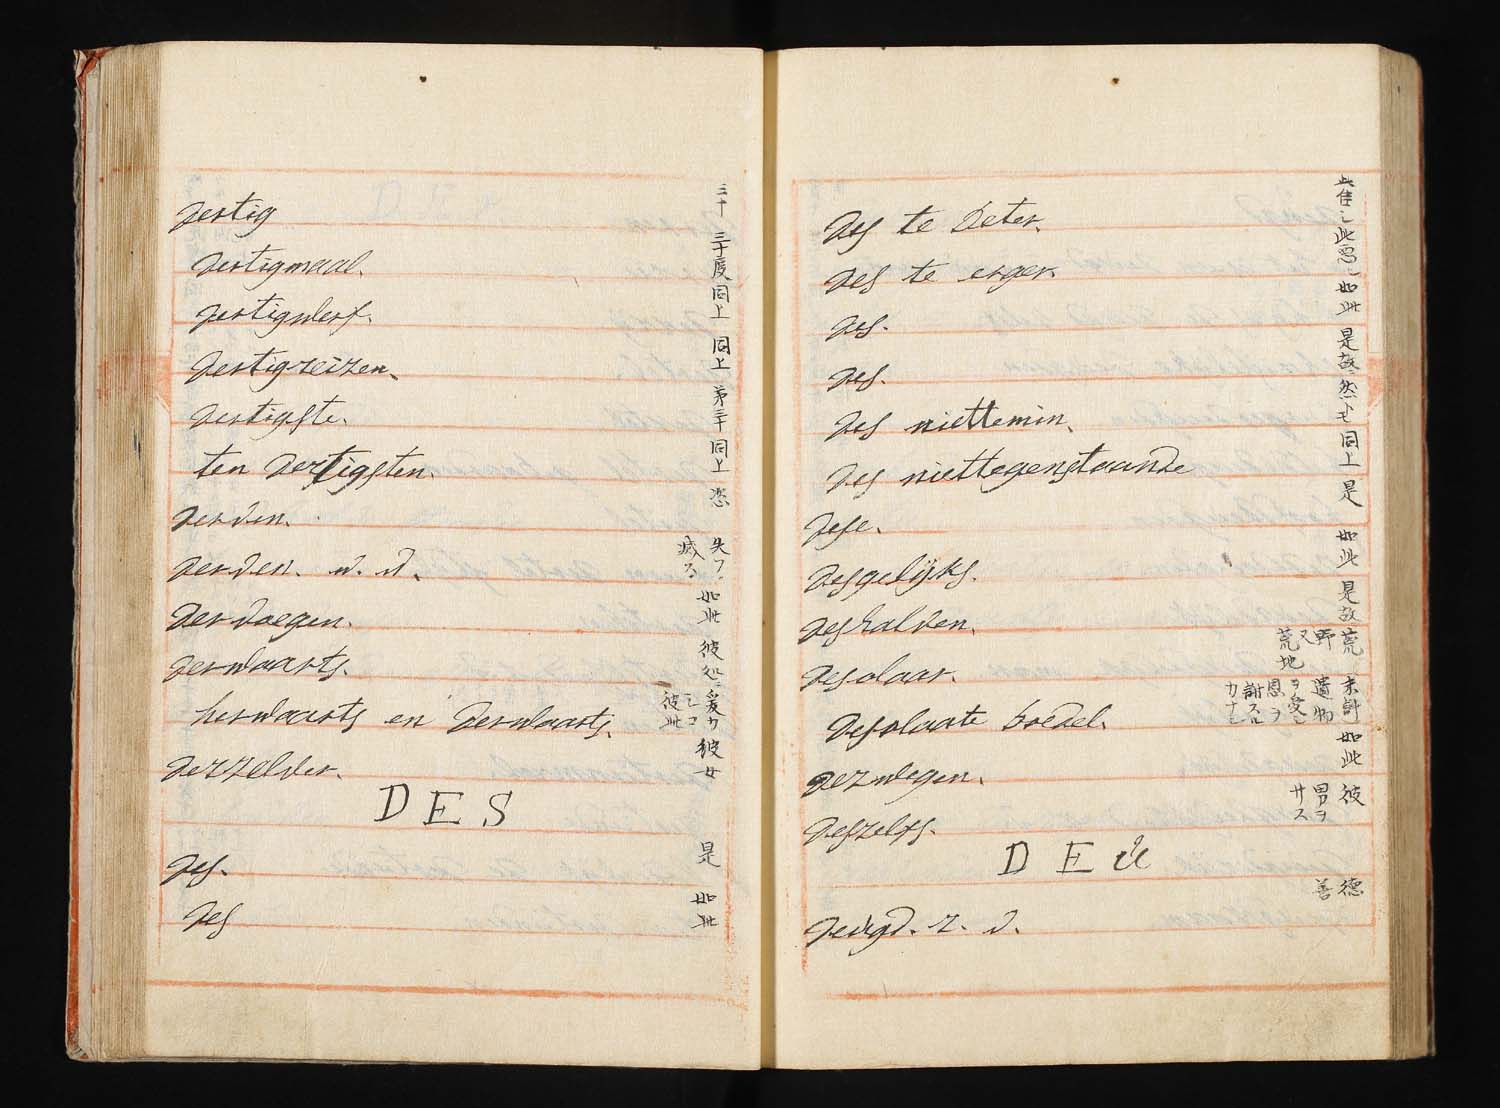 dertig 三十
dertigmaal. 三十度
dertigwerf. 同上
dertigreizen. 同上
dertigste. 第三十
ten dertigsten. 同上
derven. 恣
derven. w. d. 失フ 滅ス
dervoegen. 如此
derwaarts. 彼処ニ
herwaarts en derwaarts. 爰カシコ 彼此
derzelver. 彼女
DES
des. 是
des 如此
des te beter. 此佳シ
des te erger. 此悪シ
des. 如此
des. 是故ニ
des niettemin. 然トモ
des niettegenstaande 同上
dese. 是
desgelijks. 如此
deshalven. 是故
desolaat. 荒野 又荒地
desolaate boedel. 遺物
dezwegen. 如此
deszelfs. 彼 男ヲサス
DEU
deugd. z. d. 徳 善